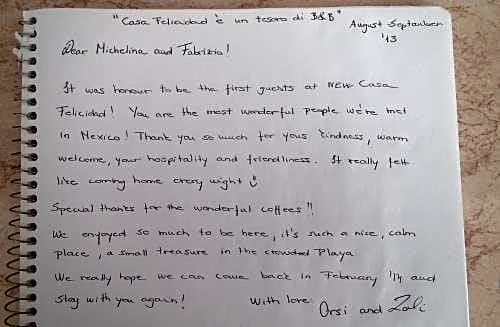 "Casa Felicidad è un tesoro di B&B"
August September '13
Dear Michelina and Fabrizio!
It was honour to be the first guests at NEW Casa
Felicidad! You are the most wonderful people we're met
in Mexico! Thank you so much for your kindness, warm
welcome, your hospitality and friendliness. It really felt
like coming home every night
Special thanks for the wonderful coffees!!
We enjoyed so much to be here, it's such a nice, calm
place, a small treasure in the crowded Playa
We really hope we can come back in February '14 and
stay with you again!
With love: Orsi and Zoli